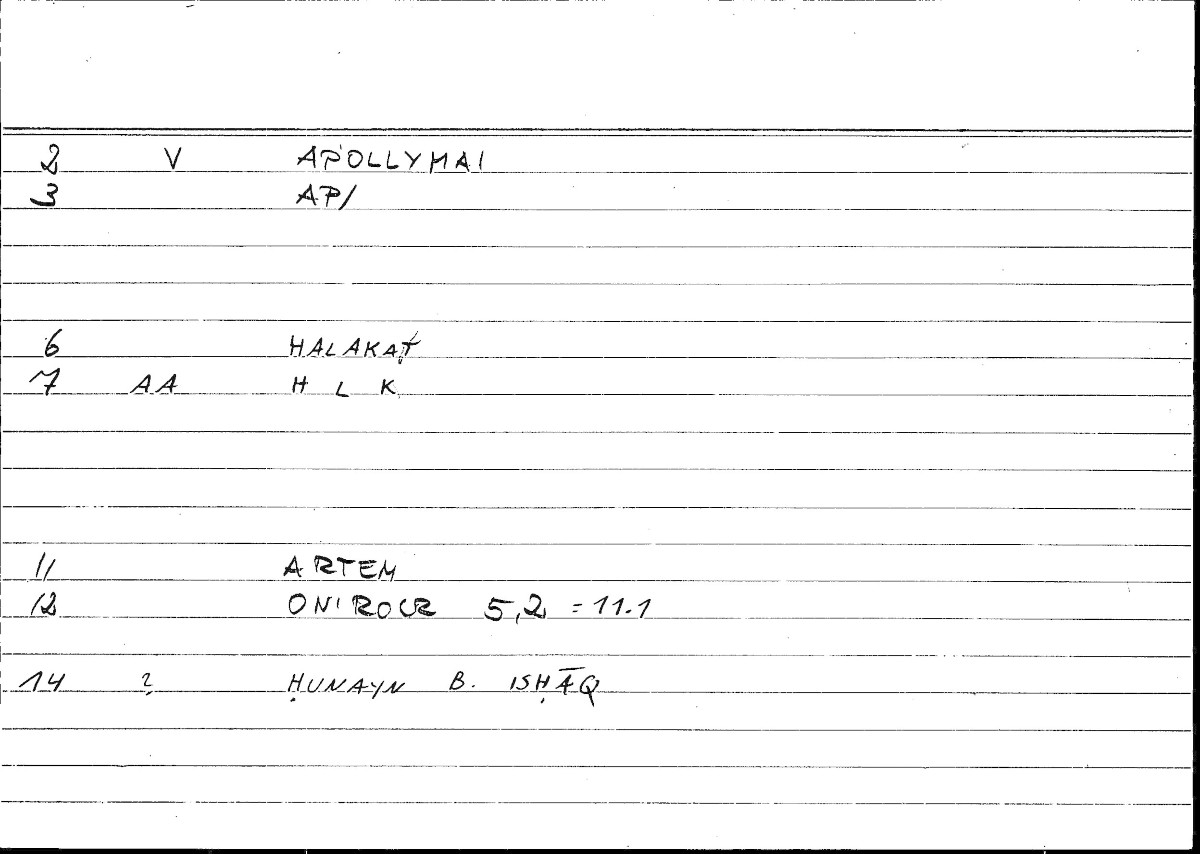 2 V APOLLYMAI
3 AP/
6 HALAKAT
7 AA H L K
11 ARTEM
12 ONIROCR 5,2 = 11.1
14 ? ḤUNAYN B. ISḤĀQ